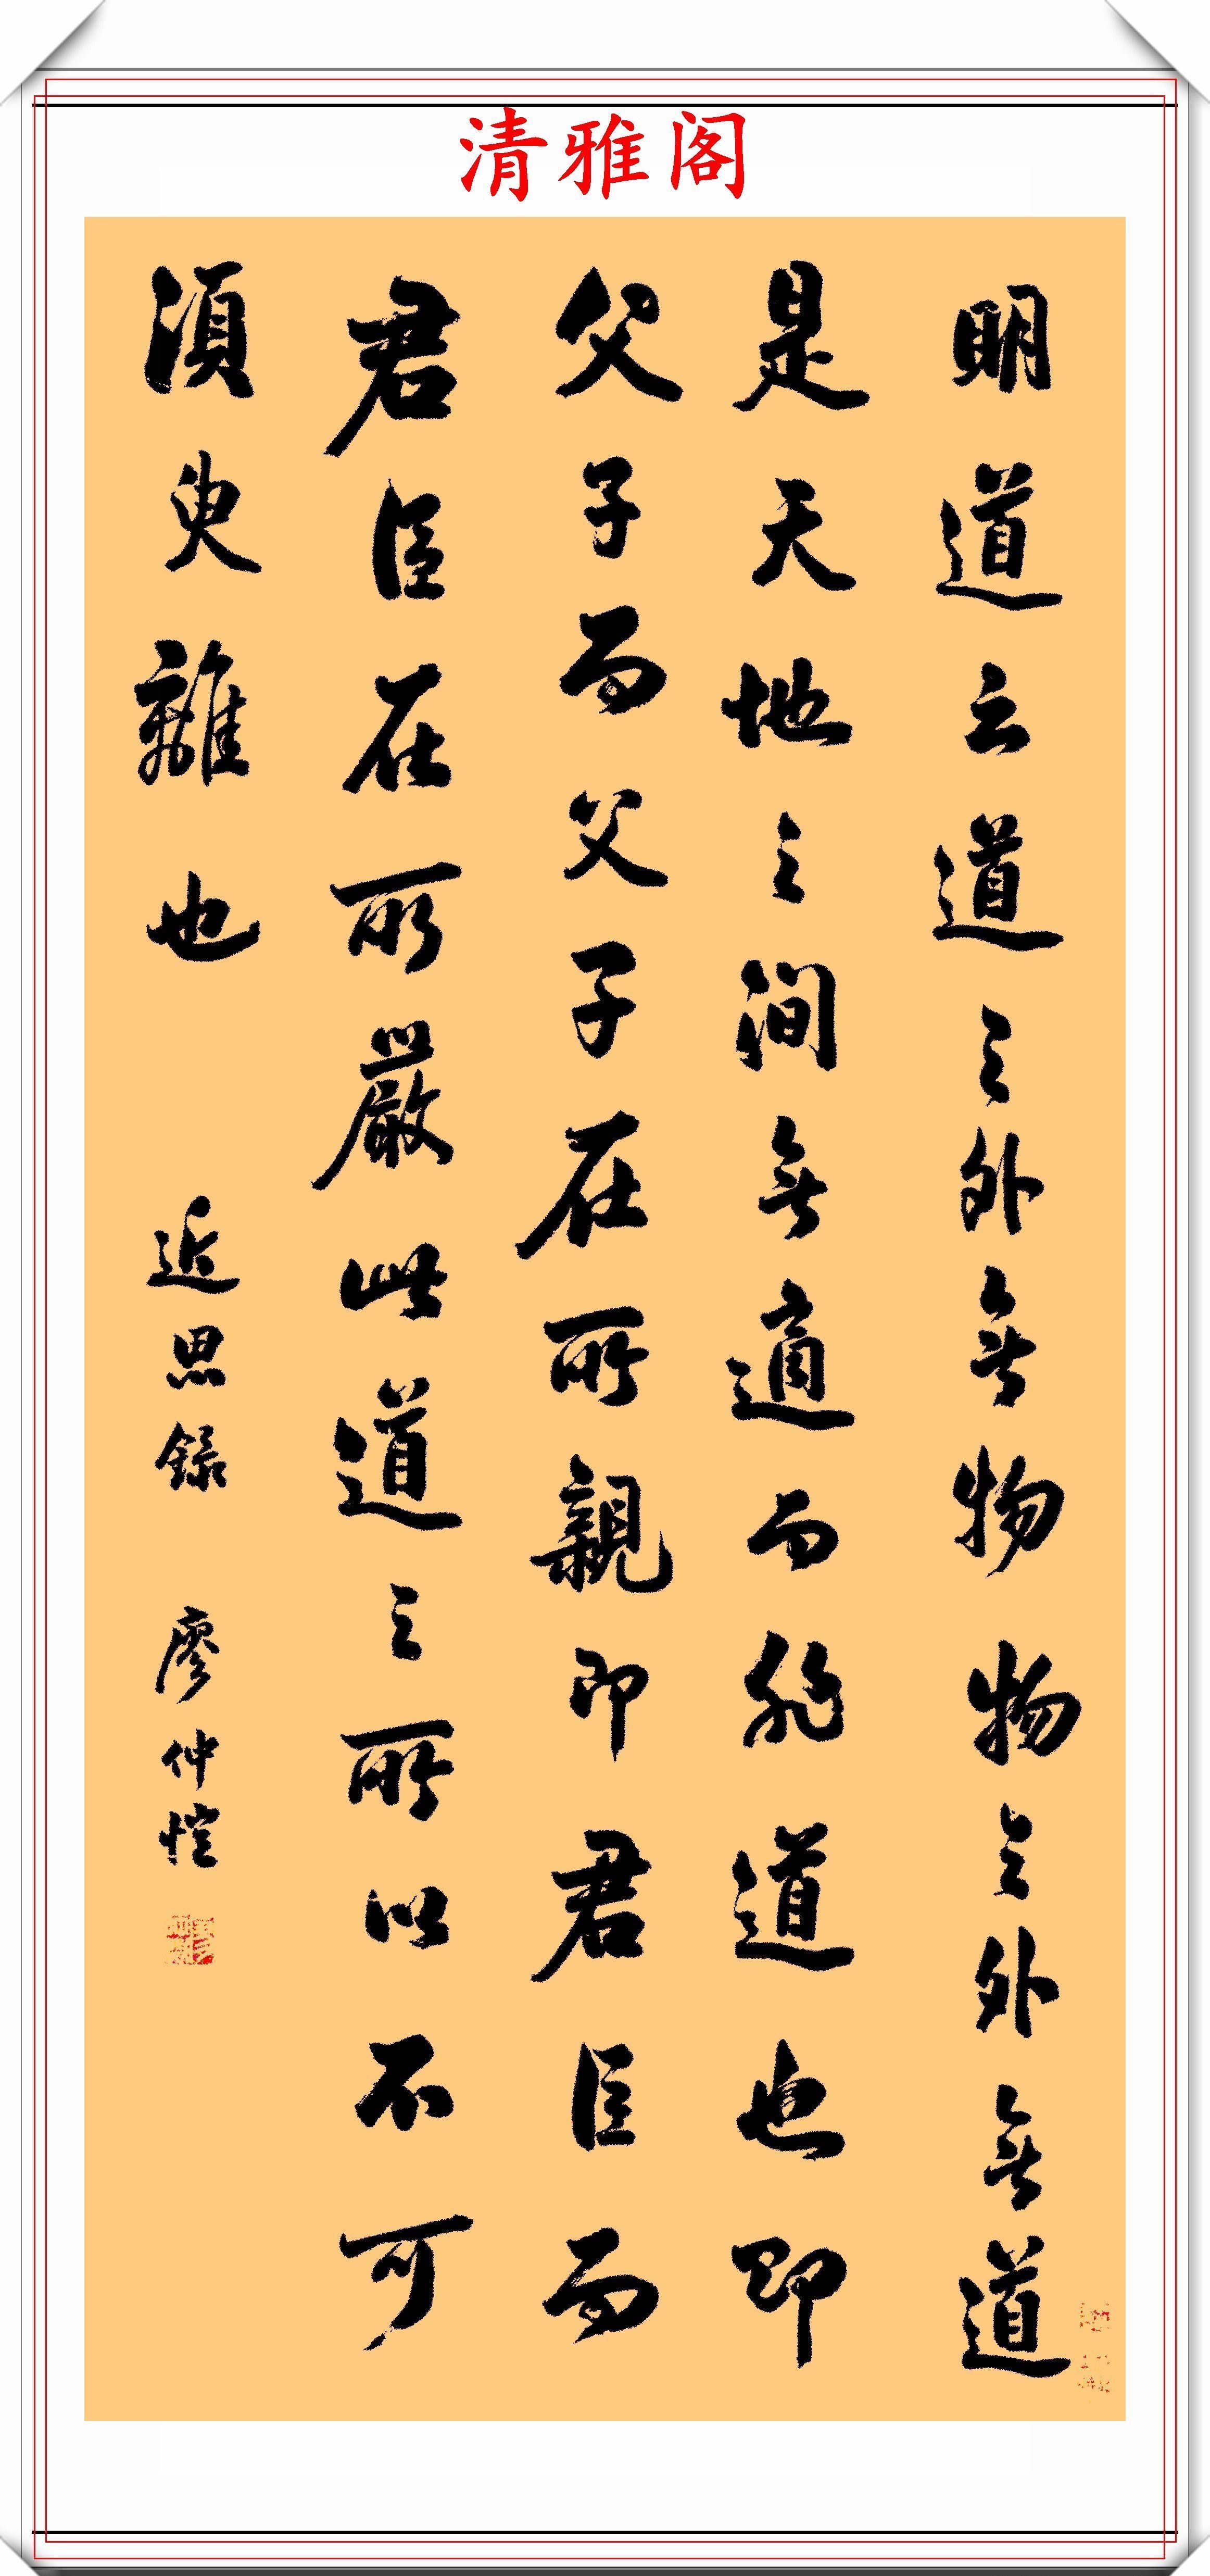 清雅阁
明道云道之外無物物之外無道
是天地之間無適而非道也即
父子而父子在所親即君臣而
君臣在所嚴此道之所以不可
須臾離也 近思錄 廖仲愷